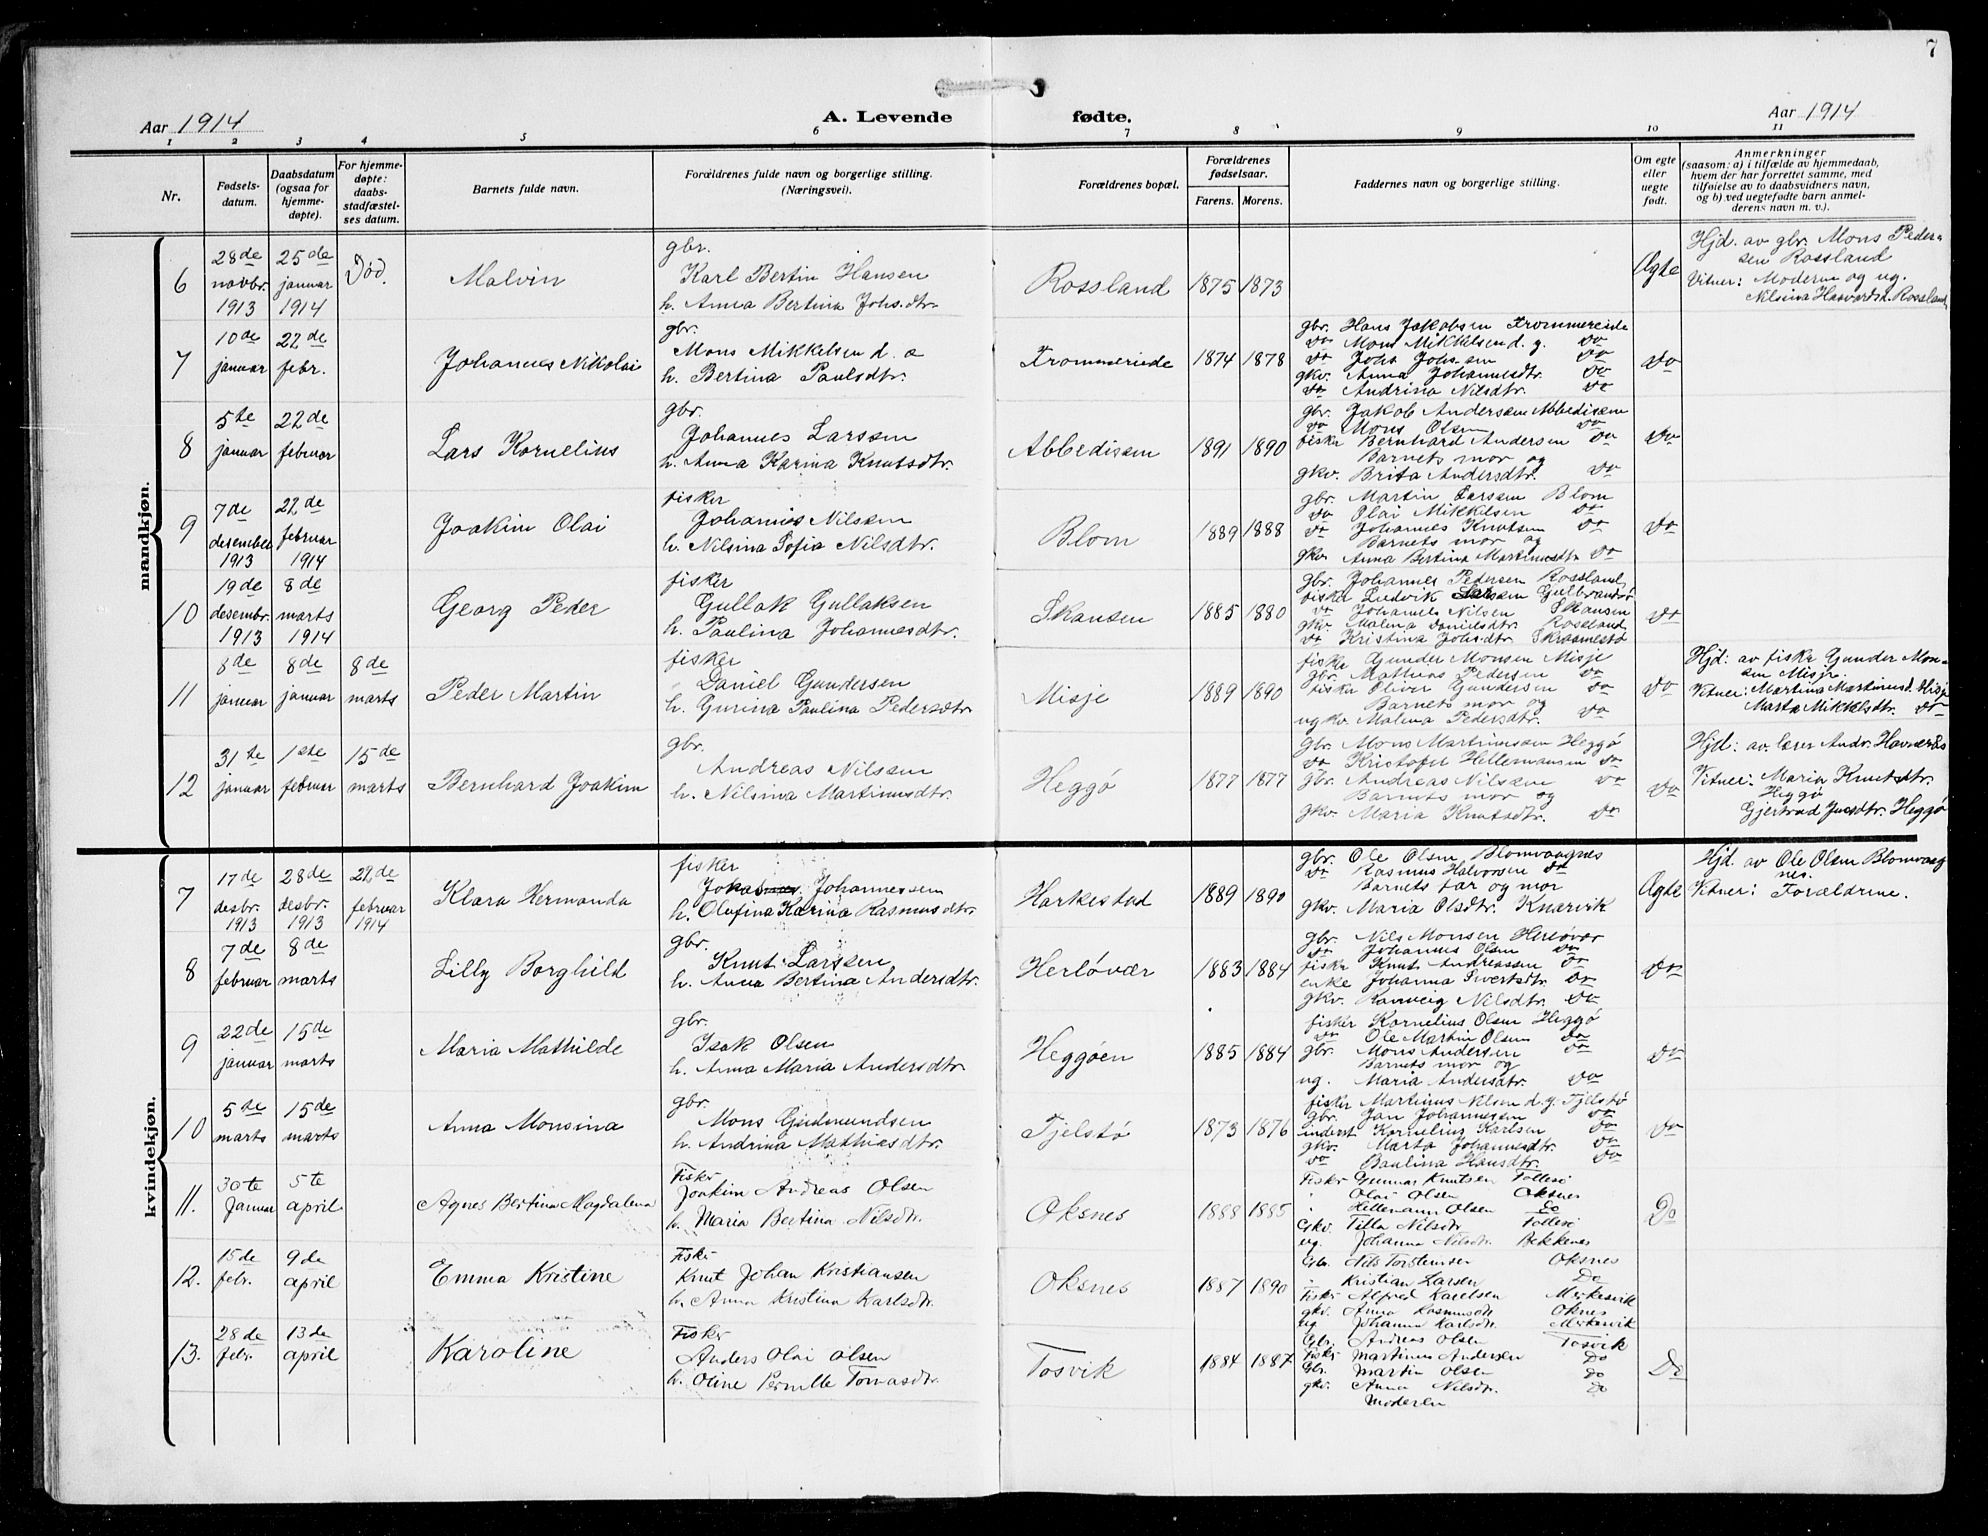 7
Aar 1914
A. Levende fødte.
Aar 1914
1 2 3 4 5 6 7 8 9 10 11
Nr.
Fødsels-
datum.
Daabsdatum
(ogsaa for
hjemme-
døpte).
For hjemme-
døpte:
daabs-
stadfæstel-
ses datum.
Barnets fulde navn.
Forældrenes fulde navn og borgerlige stilling.
(Næringsvei).
Forældrenes bopæl.
Forældrenes
fødselsaar.
Farens. Morens.
Faddernes navn og borgerlige stilling.
Om egte
eller
uegte
født.
Anmerkninger
(saasom: a) i tilfælde av hjemmedaab,
hvem der har forrettet samme, med
tilføielse av to daabsvidners navn,
og b) ved uegtefødte barn anmel-
derens navn m. v.).
mandkjøn.
6
28de
novbr.
1913
25de
januar
1914
Død.
Malvin
gbr.
Karl Bertin Hansen
h. Anna Bertina Johs.dtr.
Rossland
1875 1873
Ægte
Hjd. av gbr. Mons Peder-
sen Rossland
Vitner: Moderne og ug.
Nilsina Havardsd. Rossland
7
10de
januar
22de
febr.
Johannes Nikolai
gbr.
Mons Mikkelsen d. e
h. Bertina Paulsdtr.
Trommereide
1874 1878
gbr. Hans Jakobsen Trommereide
do Mons Mikkelsen d. y. do
do Johs Johs.sen do
gkv. Anna Johannesdtr. do
do Andrina Nilsdtr. do
do
8
5te
januar
22de
februar
Lars Kornelius
gbr.
Johannes Larssen
h. Anna Karina Knutsdtr.
Abbedisen
1891 1890
gbr. Jakob Andersen Abbedisen
do Mons Olsen do
fisker Bernhard Andersen do
Barnets mor og
gkv. Brita Andersdtr. do
do
9
7de
desember
1913
22de
februar
1914
Joakim Olai
fisker
Johannes Nilsen
h. Nilsina Sofia Nilsdtr.
Blom
1889 1888
gbr. Martin Larssen Blom
do Olai Mikkelsen do
do Johannes Knutsen do
Barnets mor og
gkv. Anna Bertina Martinusdtr do
do
10
19de
desembr.
1913
8de
marts
1914
Georg Peder
fisker
Gullak Gullaksen
h. Paulina Johannesdtr.
Skansen
1885 1880
gbr. Johannes Pedersen Rossland
fisker Ludvik Larsen Gulbrandsø
do Johannes Nilsen Skansen
gkv. Malena Danielsdtr Rossland
do Kristina Johs.dtr. Skraamestø
do
11
8de
januar
8de
januar
8de
marts
Peder Martin
fisker
Daniel Gundersen
h. Gurina Paulina Pedersdtr
Misje
1889 1890
fisker Gunder Monsen Misje
gbr. Mathias Pedersen do
fisker Oliver Gundersen do
Barnets mor og
ug kv. Malena Pedersdtr. do
do
Hjd: av fisker Gunder Mon-
sen Misje.
Vitner: Martina Martinusd. Misje
Marta Mikkelsdtr. do
12
31te
januar
1ste
februar
15de
marts
Bernhard Joakim
gbr.
Andreas Nilsen
h. Nilsina Martinusdtr.
Heggø
1877 1877
gbr. Mons Martinussen Heggø
do Kristofer Hellemansen do
gbr. Andreas Nilsen do
Barnets mor og
gkv. Maria Knutsdtr. do
do
Hjd: av. lærer Andr. Havnerås
Vitner: Maria Knutsdtr.
Heggø
Gjertrud Jensdtr. Heggø
kvindekjøn.
7
17de
desbr.
1913
28de
desbr.
1913
22de
februar
1914
Klara Hermanda
fisker
Johannes Johannessen
h. Olufina Karina Rasmusdtr.
Harkestad
1889 1890
gbr. Ole Olsen Blomvaagnes
do Rasmus Halvorsen do
Barnets far og mor
gkv. Maria Olsdtr. Knarvik
Ægte
Hjd. av Ole Olsen Blomvaag
nes.
Vitner: Forældrene.
8
7de
februar
8de
marts
Lilly Borghild
gbr.
Knut Larssen
h. Anna Bertina Andersdtr.
Herløvær
1883 1884
gbr. Nils Monsen Herløvær
do Johannes Olsen do
fisker Knut Andreassen do
enke Johanna Sivertsdtr. do
gkv. Ranveig Nilsdtr. do
do
9
22de
januar
15de
marts
Maria Mathilde
gbr.
Isak Olsen
h. Anna Maria Andersdtr.
Heggøen
1885 1884
fisker Kornelius Olsen Heggø
do Ole Martin Olsen do
gbr. Mons Andersen do
Barnets mor og
ug. Maria Andersdtr. do
do
10
5te
marts
15de
marts
Anna Monsina
gbr.
Mons Gudmundsen
h. Andrina Mathiesdtr.
Tjelstø
1873 1876
fisker Martinus Nilsen d. y. Tjelstø
gbr. Jan Johannesen do
inderst Kornelius Karlsen do
gkv. Marta Johannesdtr. do
do Paulina Hansdtr. do
do
11.
30te
Januar
5te
april
Agnes Bertina Magdalena
Fisker
Joakim Andreas Olsen
h. Maria Bertina Nilsdtr.
Oksnes
1888 1885
Fisker Gunnar Knutsen Tollesø
" Olai Olsen Oksnes
" Hellemann Olsen Do
Gkv. Tilla Nilsdtr Tollesø
ug. Johanna Nilsdtr. Bekkenes
Do
12.
15de
febr.
9de
april
Emma Kristine
Fisker
Knut Johan Kristiansen
h. Anna Kristina Karlsdtr.
Oksnes
1887 1890
Gbr. Nils Torstensen Oksnes
" Kristian Larsen Do
Fisker Alfred Karelsen Merkesvik
gkv. Anna Rasmusdtr Oknes
ug Johanna Karlsdtr. Merkesvik
13.
28de
febr.
13de
april
Karoline
Fisker
Anders Olai Olsen
h. Oline Pernille Tomasdtr.
Tosvik
1884 1887
Gbr. Andreas Olsen Tosvik
Fisker Martinus Andersen Do
Gbr. Martin Olsen Do
gkv. Anna Nilsdtr. Do
Moderen
Do